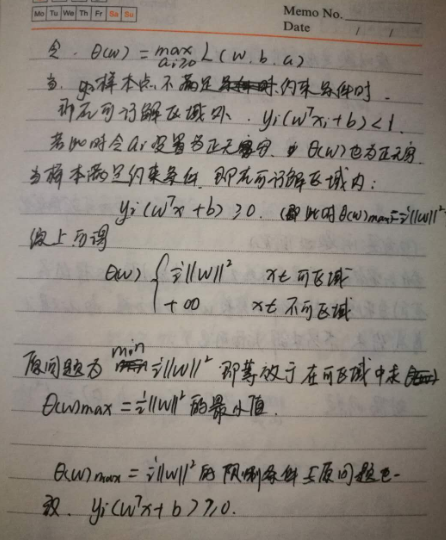 Mo Tu We Th Fr Sa Su
Memo No.
Date / /
令. θ(w) = max L(w.b.a)
ai≥0
当. 样本点不满足 约束条件时.
即在可行解区域外. yi(wᵀxi+b)<1.
若此时令ai设置为正无穷. θ(w)也为正无穷.
当样本满足约束条件. 即在可行解区域内:
yi(wᵀx+b)≥0. (即此时θ(w)max=½||w||²
综上可谓
θ(w) { ½||w||² x∈可区域
+∞ x∈不可区域
原问题为 min ½||w||² 即等效于在可区域中求
θ(w)max = ½||w||² 的最小值.
θ(w)max = ½||w||² 的限制条件与原问题也一
致. yi(wᵀx+b)≥0.